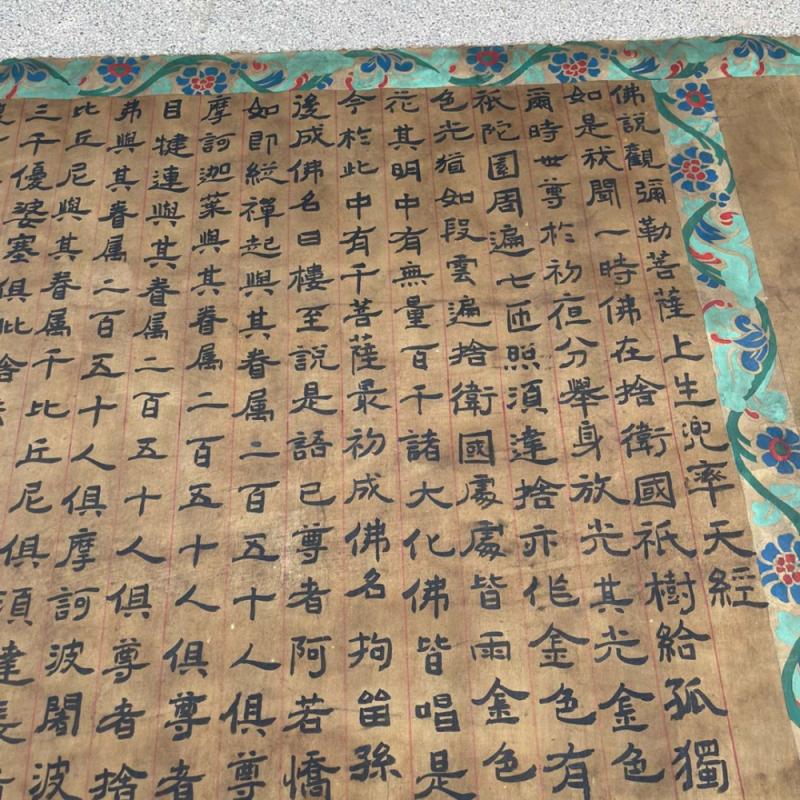 佛說觀彌勒菩薩上生兜率天經
如是我聞一時佛在捨衛國祇樹給孤獨
爾時世尊於初夜分舉身放光其光金色
祇陀園周遍七匝照須達捨亦作金色有
色光猶如段雲遍捨衛國處處皆雨金色
花其明中有無量百千諸大化佛皆唱是
今於此中有千菩薩最初成佛名拘留孫
後成佛名曰樓至說是語已尊者阿若憍
如即縱禪起與其眷属二百五十人俱尊
摩訶迦葉與其眷属二百五十人俱尊者
目犍連與其眷属二百五十人俱尊者捨
弗與其眷属二百五十人俱摩訶波闍波
比丘尼與其眷属千比丘尼俱須達長
三千優婆塞俱此捨